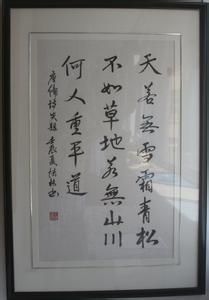 天若无雪霜青松
不如草地若無山川
何人重平道
唐備詩失題 壬辰夏